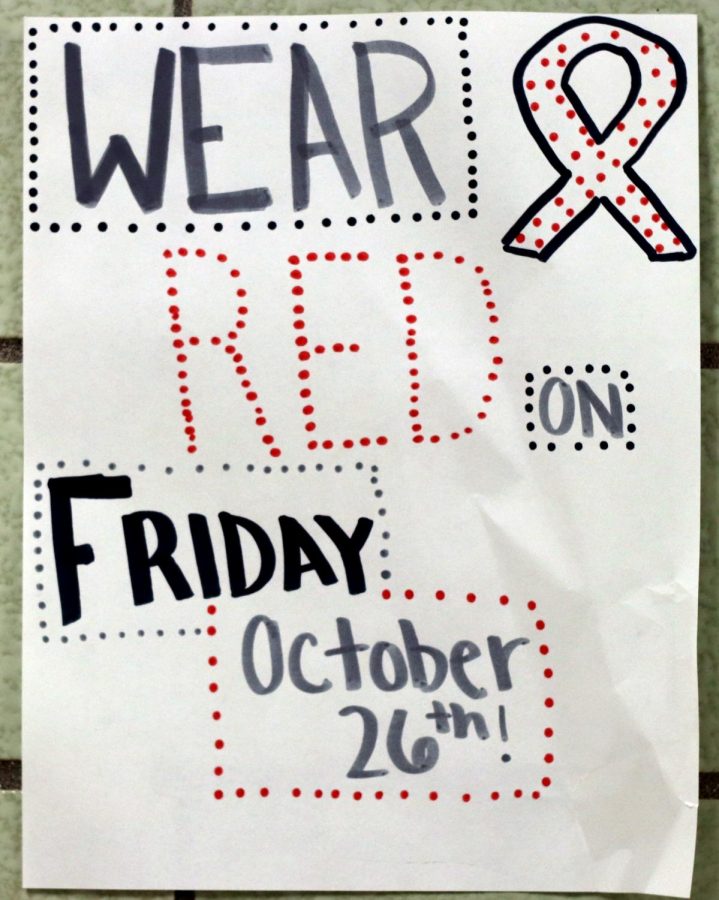 WEAR
RED
ON
FRIDAY
October
26th!